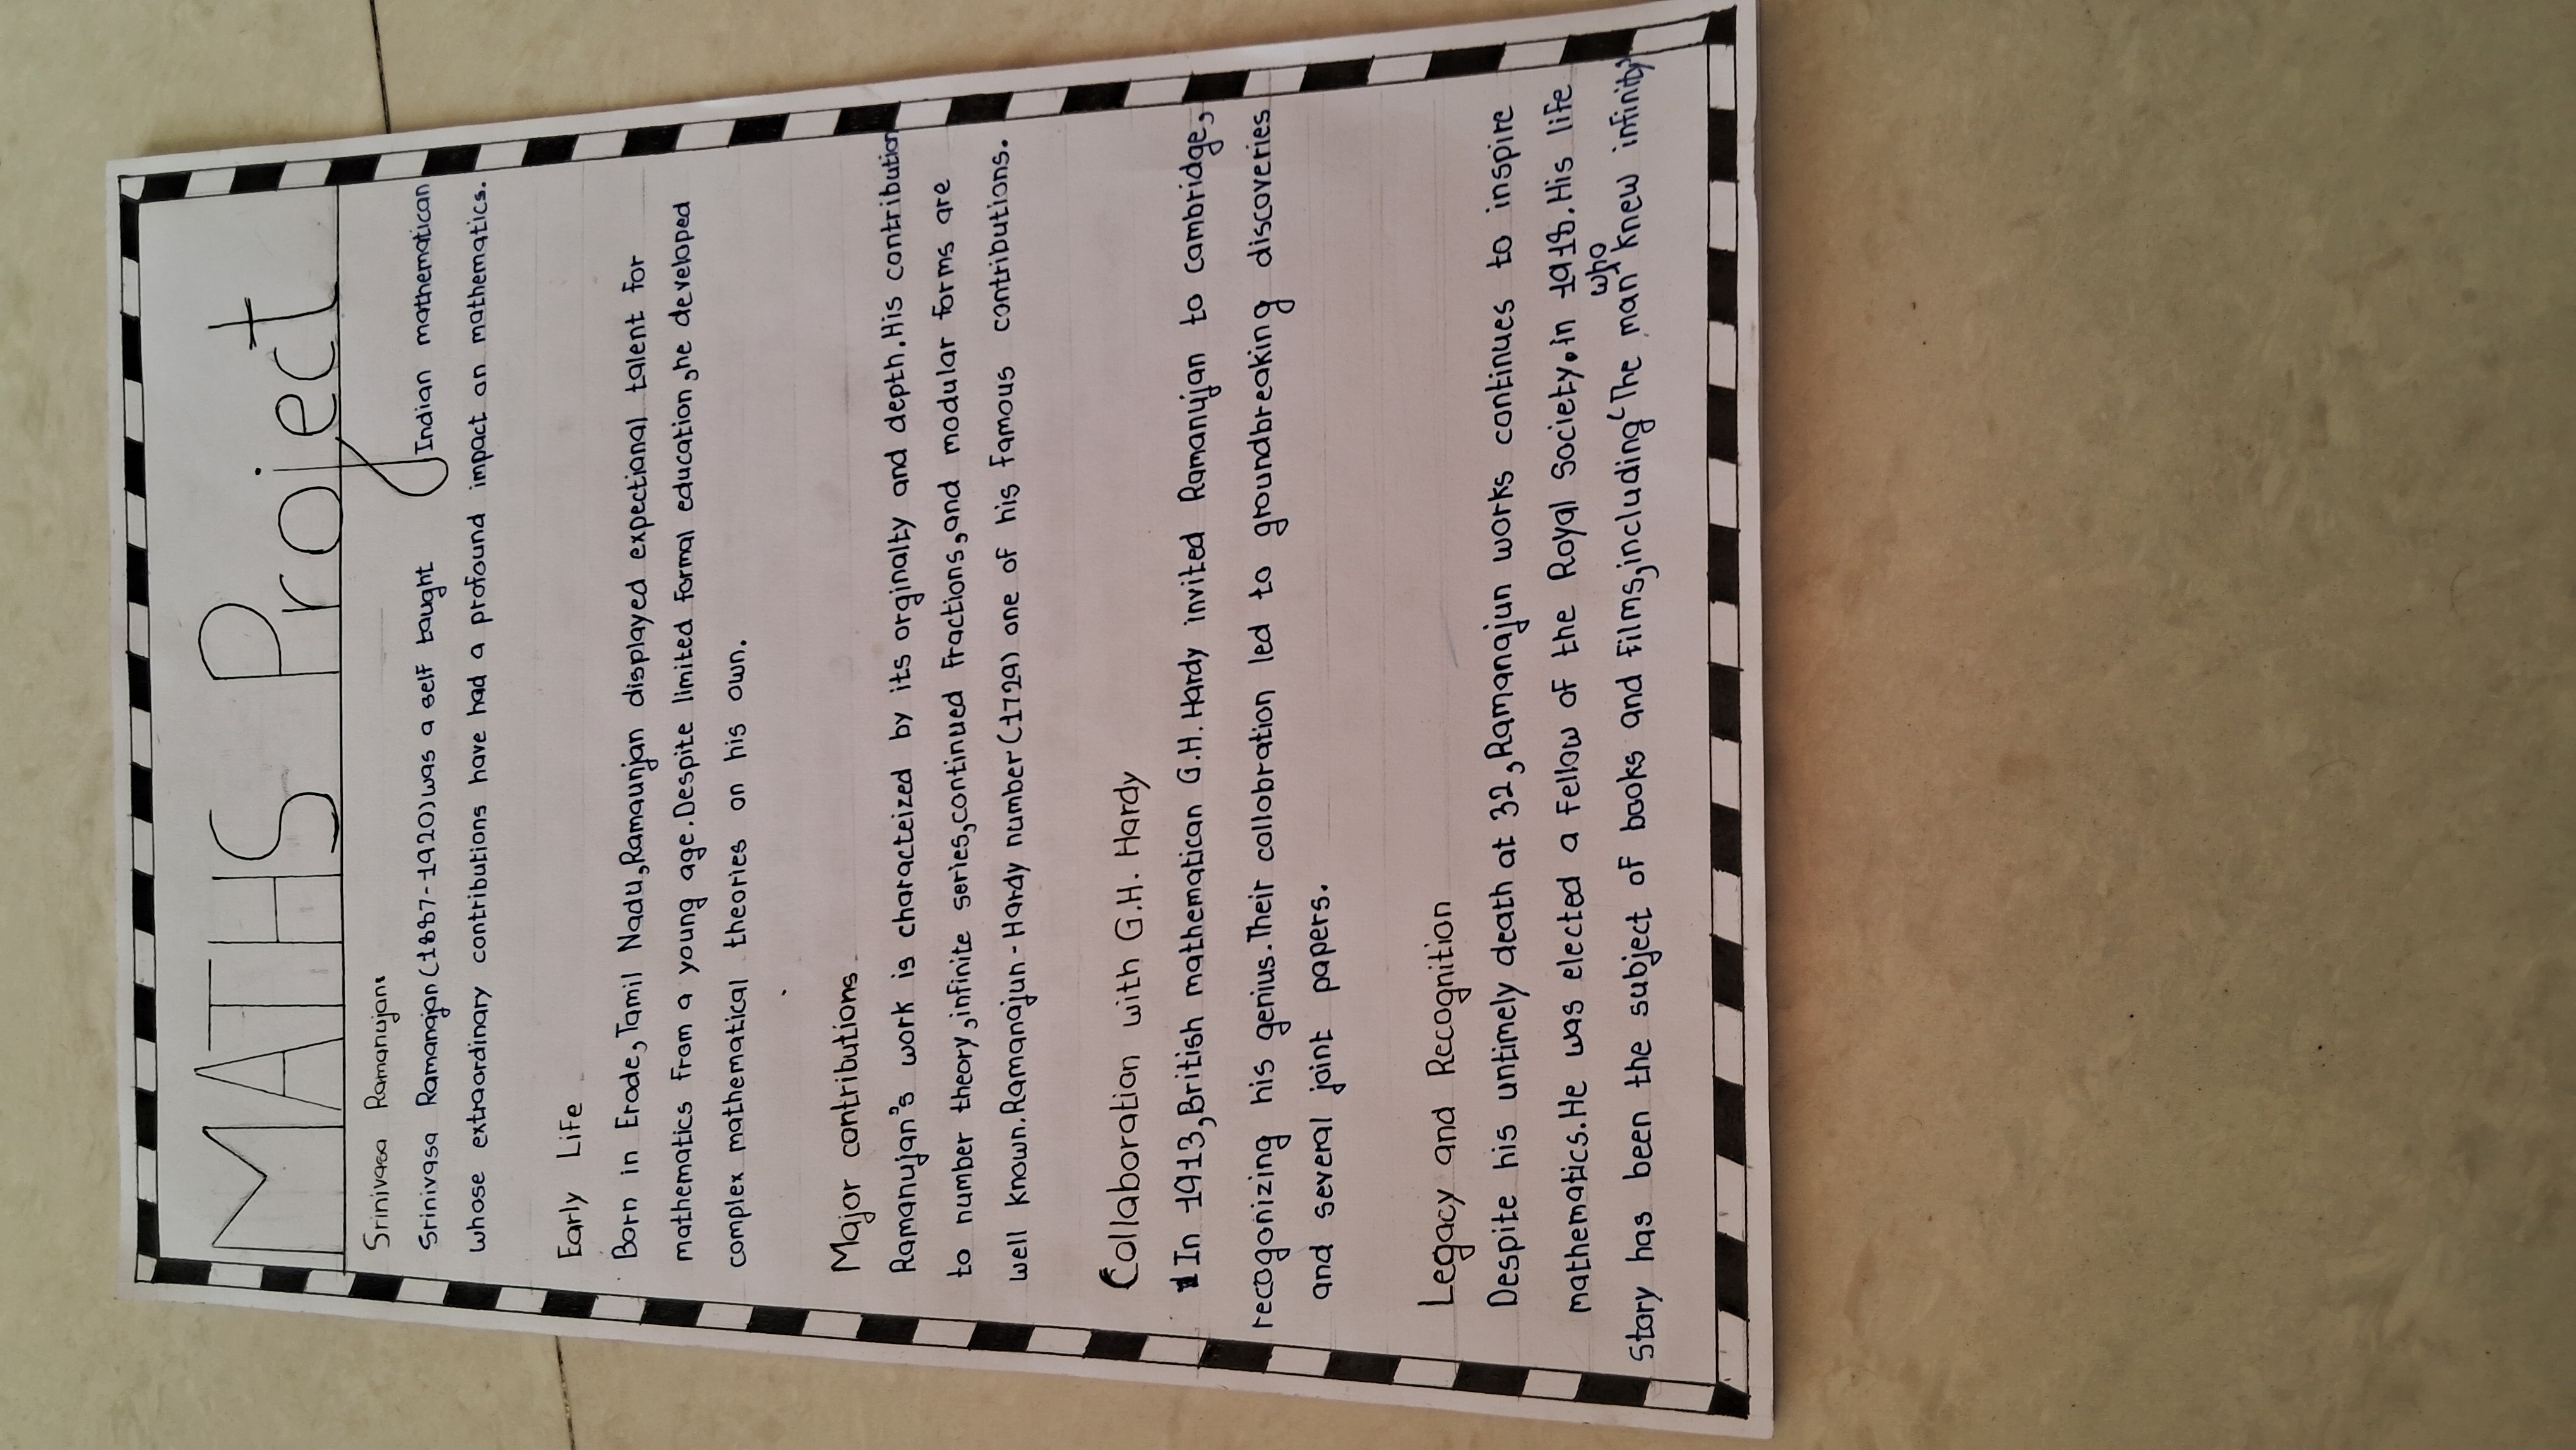 MATHS Project
Srinivasa Ramanujan:
Srinivasa Ramanajan (1887-1920) was a self taught Indian mathematican
whose extraordinary contributions have had a profound impact on mathematics.
Early Life
Born in Erode, Tamil Nadu, Ramaunjan displayed expectional talent for
mathematics from a young age. Despite limited formal education, he developed
complex mathematical theories on his own.
Major contributions
Ramanujan's work is characteized by its orginalty and depth. His contribution
to number theory, infinite series, continued fractions, and modular forms are
well known. Ramanajun - Hardy number (1729) one of his famous contributions.
Collaboration with G.H. Hardy
In 1913, British mathematican G.H. Hardy invited Ramanujan to cambridge,
recogonizing his genius. Their collobration led to groundbreaking discoveries
and several joint papers.
Legacy and Recognition
Despite his untimely death at 32, Ramanajun works continues to inspire
mathematics. He was elected a fellow of the Royal Society. in 1918. His life
Story has been the subject of books and films, including 'The man who knew infinity'